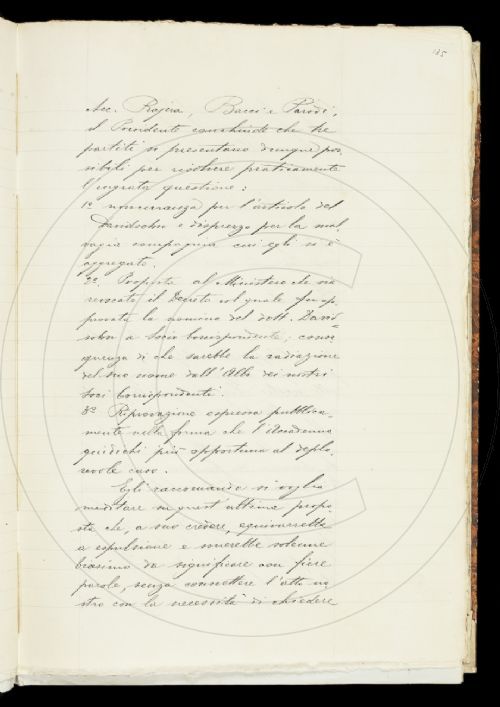 135
Acc. Rajna, Bacci e Parodi,
il Presidente conchiude che tre
partiti si presentano dunque pos
sibili per risolvere praticamente
l'ingrata questione:
1º noncuranza per l'articolo del
Davidsohn e disprezzo per la mal
vagia compagnia cui egli si è
aggregato.
2º. Proposta al Ministero che sia
revocato il Decreto col quale fu ap
provata la nomina del dott. David=
sohn a Socio Corrispondente; conse
guenza di che sarebbe la radiazione
del suo nome dall'Albo dei nostri
Soci Corrispondenti.
3º Riprovazione espressa pubblica-
mente nella forma che l'Accademia
giudichi più opportuna al deplo
revole caso.
Egli raccomanda si voglia
meditare su quest'ultima propo
sta che, a suo credere, equivarrebbe
a espulsione e sonerebbe solenne
biasimo da significare con fiere
parole, senza connettere l'atto no
stro con la necessità di chiedere